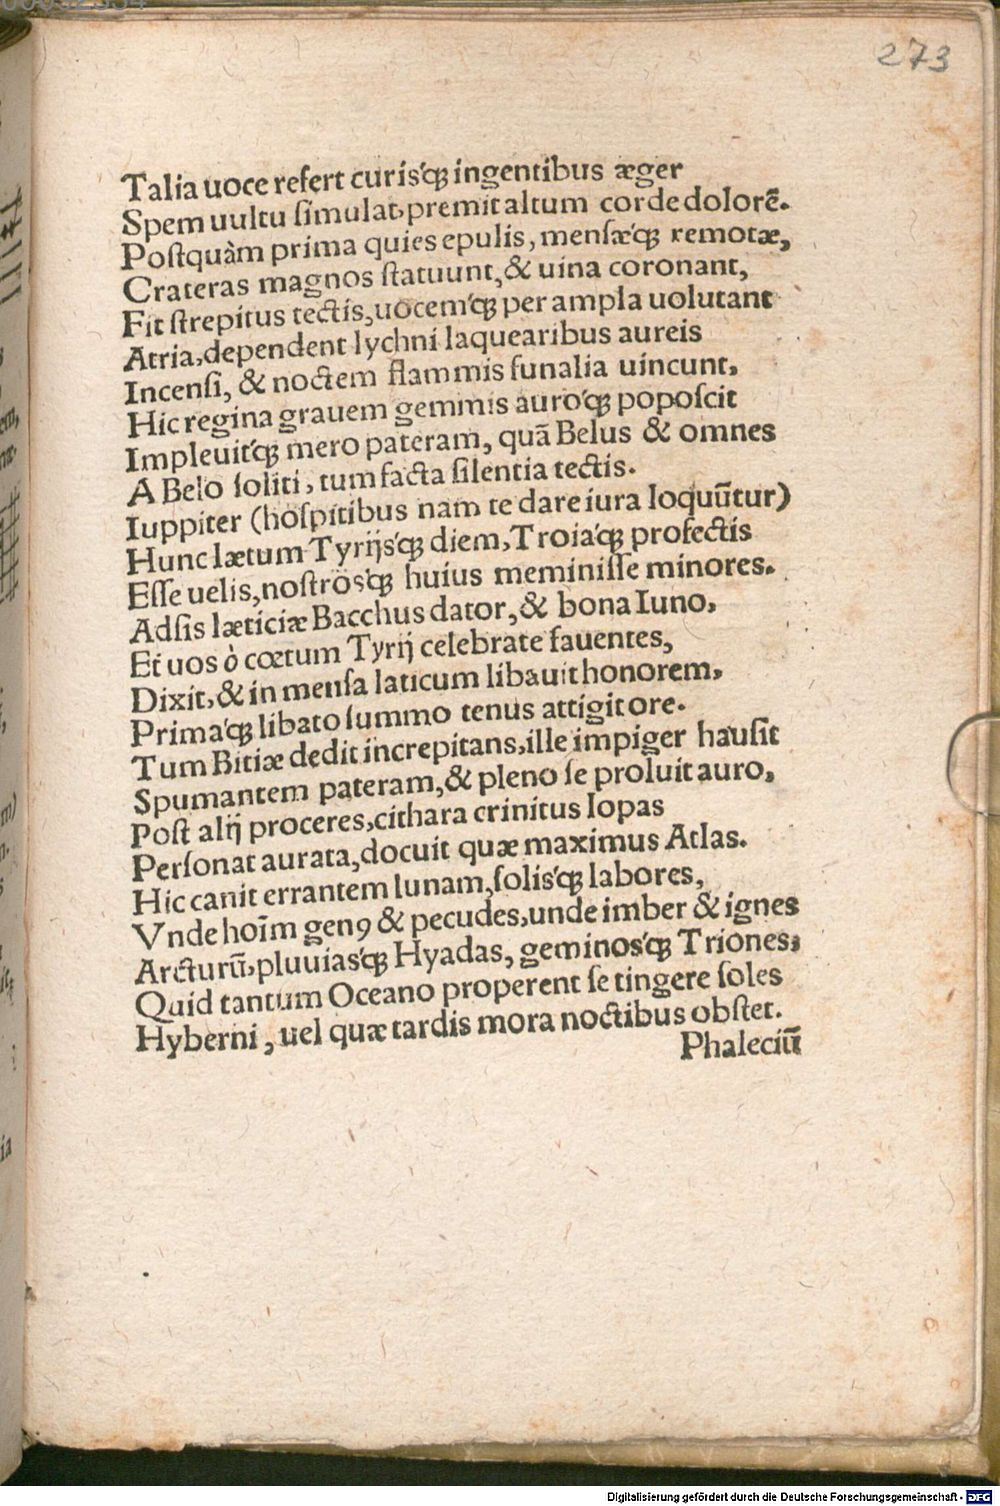 273
Talia uoce refert curis'qꝫ ingentibus æger
Spem uultu ſimulat, premit altum corde dolorē.
Poſtquàm prima quies epulis, menſæ'qꝫ remotæ,
Crateras magnos ſtatuunt, & uina coronant,
Fit ſtrepitus tectis, uocem'qꝫ per ampla uolutant
Atria, dependent lychni laquearibus aureis
Incenſi, & noctem flammis funalia uincunt,
Hic regina grauem gemmis auro'qꝫ popoſcit
Impleuit'qꝫ mero pateram, quã Belus & omnes
A Belo ſoliti, tum facta ſilentia tectis.
Iuppiter (hoſpitibus nam te dare iura loquũtur)
Hunc lætum Tyrijs'qꝫ diem, Troia'qꝫ profectis
Eſſe uelis, noſtros'qꝫ huius meminiſſe minores.
Adſis læticiæ Bacchus dator, & bona Iuno,
Et uos ò cœtum Tyrij celebrate fauentes,
Dixit, & in menſa laticum libauit honorem,
Prima'qꝫ libato ſummo tenus attigit ore.
Tum Bitiæ dedit increpitans, ille impiger hauſit
Spumantem pateram, & pleno ſe proluit auro,
Poſt alij proceres, cithara crinitus Iopas
Perſonat aurata, docuit quæ maximus Atlas.
Hic canit errantem lunam, ſolis'qꝫ labores,
Vnde hoīm genꝰ & pecudes, unde imber & ignes
Arcturũ, pluuias'qꝫ Hyadas, geminos'qꝫ Triones,
Quid tantum Oceano properent ſe tingere ſoles
Hyberni, uel quæ tardis mora noctibus obſtet.
Phaleciũ
Digitalisierung gefördert durch die Deutsche Forschungsgemeinschaft - DFG